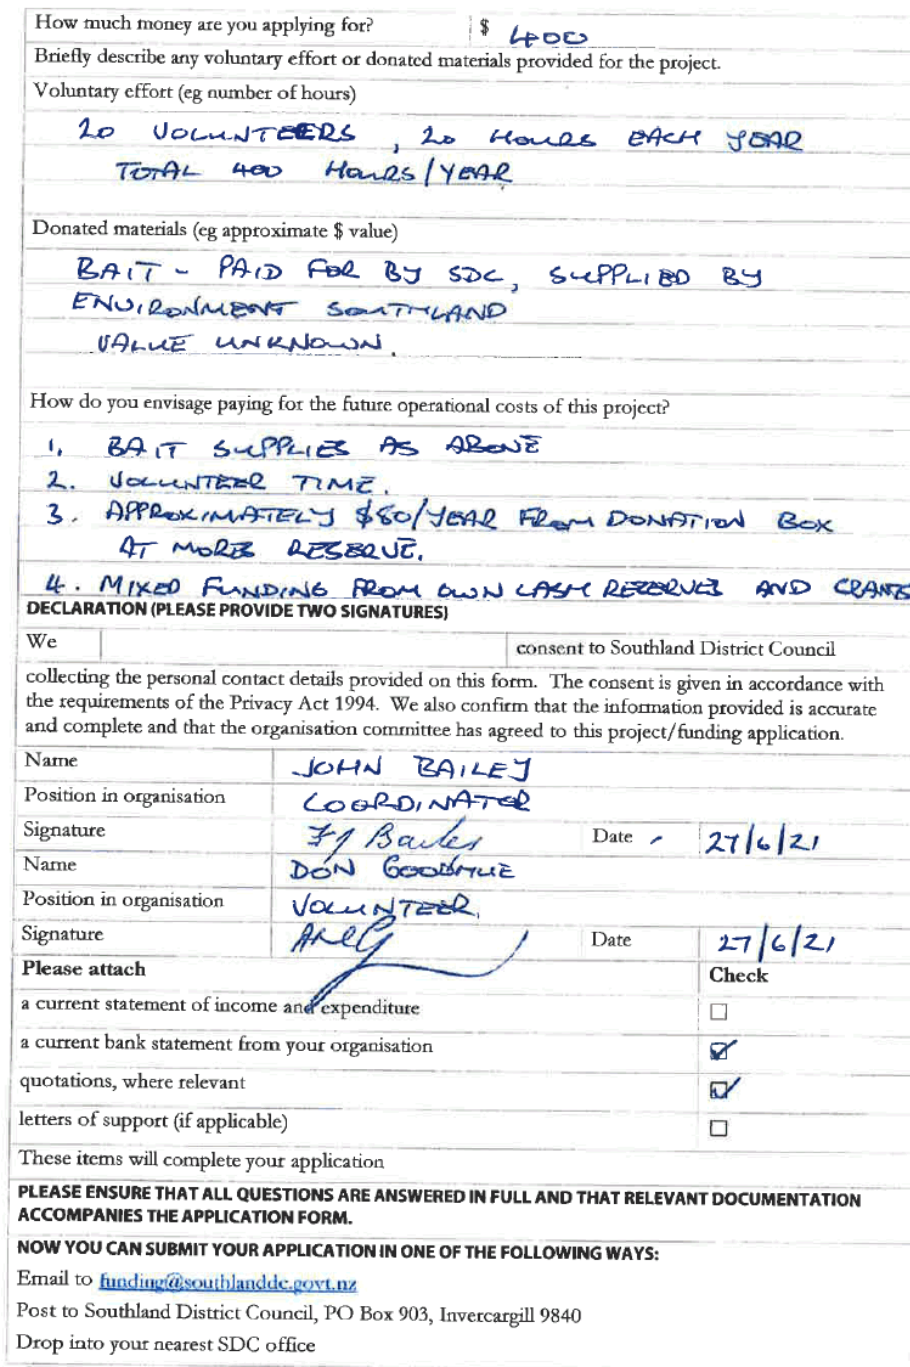 How much money are you applying for? $ 400
Briefly describe any voluntary effort or donated materials provided for the project.
Voluntary effort (eg number of hours)
20 VOLUNTEERS, 20 HOURS EACH YEAR
TOTAL 400 HOURS/YEAR
Donated materials (eg approximate $ value)
BAIT - PAID FOR BY SDC, SUPPLIED BY
ENVIRONMENT SOUTHLAND
VALUE UNKNOWN.
How do you envisage paying for the future operational costs of this project?
1. BAIT SUPPLIES AS ABOVE
2. VOLUNTEER TIME.
3. APPROXIMATELY $80/YEAR FROM DONATION BOX
AT MORES RESERVE.
4. MIXED FUNDING FROM OWN CASH RESERVES AND GRANTS
DECLARATION (PLEASE PROVIDE TWO SIGNATURES)
We consent to Southland District Council
collecting the personal contact details provided on this form. The consent is given in accordance with
the requirements of the Privacy Act 1994. We also confirm that the information provided is accurate
and complete and that the organisation committee has agreed to this project/funding application.
Name JOHN BAILEY
Position in organisation COORDINATOR
Signature Date 27/6/21
Name DON GOODHUE
Position in organisation VOLUNTEER.
Signature Date 27/6/21
Please attach Check
a current statement of income and expenditure
a current bank statement from your organisation
quotations, where relevant
letters of support (if applicable)
These items will complete your application
PLEASE ENSURE THAT ALL QUESTIONS ARE ANSWERED IN FULL AND THAT RELEVANT DOCUMENTATION
ACCOMPANIES THE APPLICATION FORM.
NOW YOU CAN SUBMIT YOUR APPLICATION IN ONE OF THE FOLLOWING WAYS:
Email to funding@southlanddc.govt.nz
Post to Southland District Council, PO Box 903, Invercargill 9840
Drop into your nearest SDC office